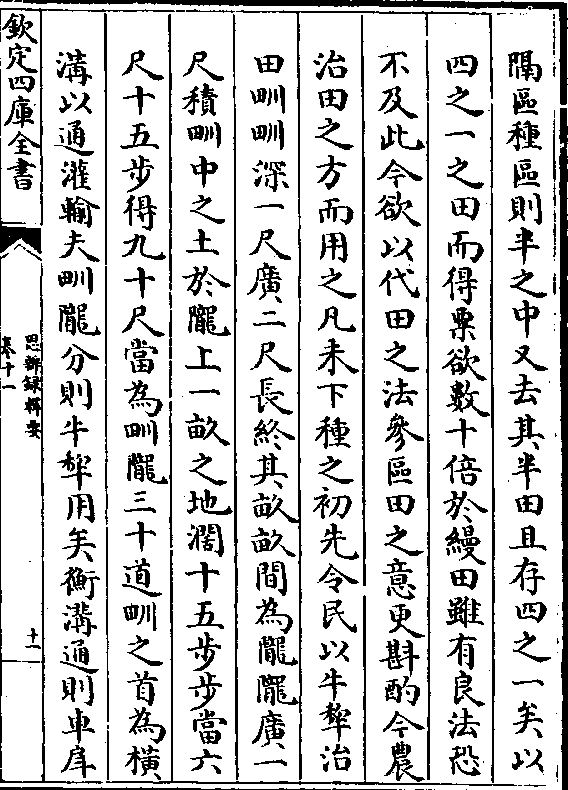 隔區種區則半之中又去其半田且存四之一矣以
四之一之田而得粟欲數十倍於縵田雖有良法恐
不及此今欲以代田之法參區田之意更斟酌今農
治田之方而用之凡未下種之初先令民以牛犂治
田甽甽深一尺廣二尺長終其畝畝間為隴隴廣一
尺積甽中之土於隴上一畝之地濶十五步步當六
尺十五步得九十尺當為甽隴三十道甽之首為橫
溝以通灌輸夫甽隴分則牛犂用矣衡溝通則車戽
欽定四庫全書
思辨録輯要
卷十一
十一